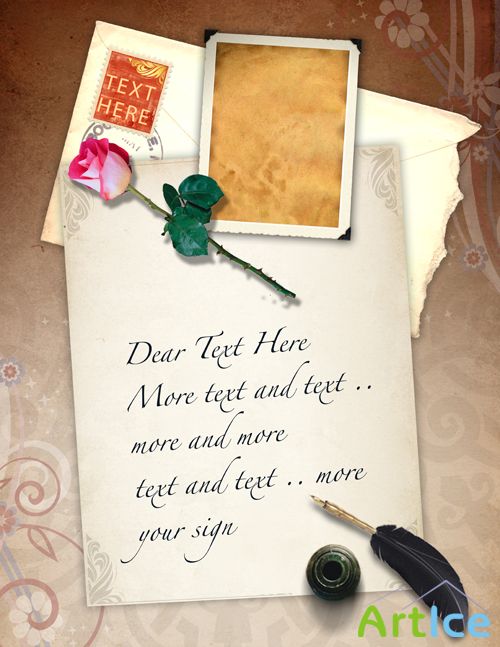 TEXT
HERE
Dear Text Here
More text and text ..
more and more
text and text .. more
your sign
ArtIce